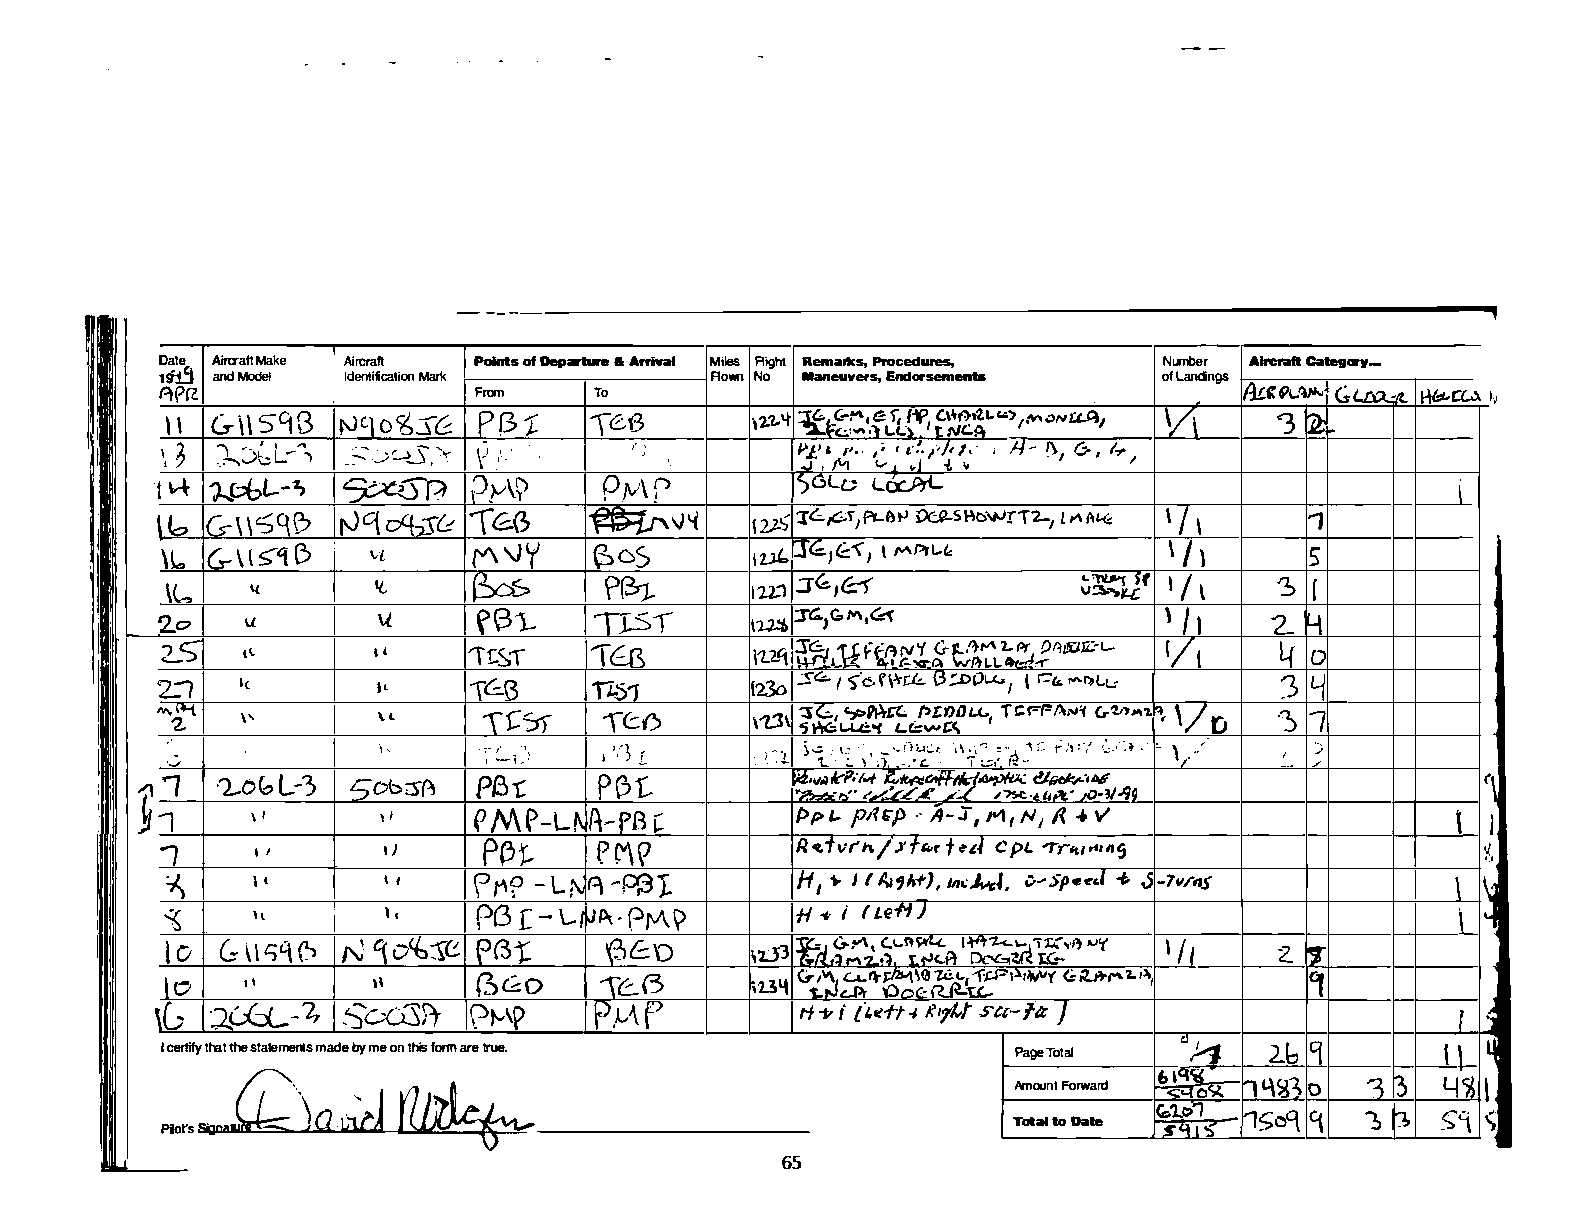 Date Aircraft Make Aircraft Points of Departure & Arrival Miles Flight Remarks, Procedures, Number Aircraft Category—
1999 and Model Identification Mark Flown No Maneuvers, Endorsements of Landings
APR From To AIRPLANE GLIDER
11 G1159B N908JE PBI TEB 1224 JE, GM, ET, AP, CHARLES, MONICA, 1/1 3 2
2 FEMALES, INCA
13 206L-3 500JA
14 206L-3 500JA PMP PMP SOLO LOCAL 1
16 G1159B N908JE TEB MVY 1225 JE, ET, ALAN DERSHOWITZ, 1 MALE 1/1 7
16 G1159B " MVY BOS 1226 JE, ET, 1 MALE 1/1 5
16 " " BOS PBI 1227 JE, ET 1/1 3 1
20 " " PBI TIST 1228 JE, GM, ET 1/1 2 4
25 " " TIST TEB 1229 JE, TIFFANY GRAMZA, DANIEL 1/1 4 0
ALEXA WALLAGET
27 " " TEB TIST 1230 JE, SOPHIE BIDDLE, 1 FEMALE 3 4
MAY
2 " " TIST TEB 1231 JE, SOPHIE BIDDLE, TIFFANY GRAMZA, 1/0 3 7
SHELLEY LEWIS
" TEB PBI 1232
7 206L-3 500JA PBI PBI Private Pilot Rotorcraft Helicopter Checkride
10-31-99
7 " " PMP-LNA-PBI PPL PREP - A-J, M, N, R + V 1
7 " " PBI PMP Return/started CPL Training
8 " " PMP-LNA-PBI H, + I (Right), includ. o-speed + S-Turns 1
8 " " PBI-LNA-PMP H + i (Left) 1
10 G1159B N908JE PBI BED 1233 JE, GM, CLAIRE HAZEL, TIFFANY 1/1 2 8
GRAMZA, INCA DOERRIG
10 " " BED TEB 1234 GM, CLAIRE HAZEL, TIFFANY GRAMZA, 9
INCA DOERRIG
16 206L-3 500JA PMP PMP H + i (Left + Right 1
I certify that the statements made by me on this form are true.
Page Total 26 9 11
Amount Forward 6198 5908 7483 0 3 3 48 1
Pilot's Signature David Rodgers Total to Date 6207 5915 7509 9 3 3 59 5
65